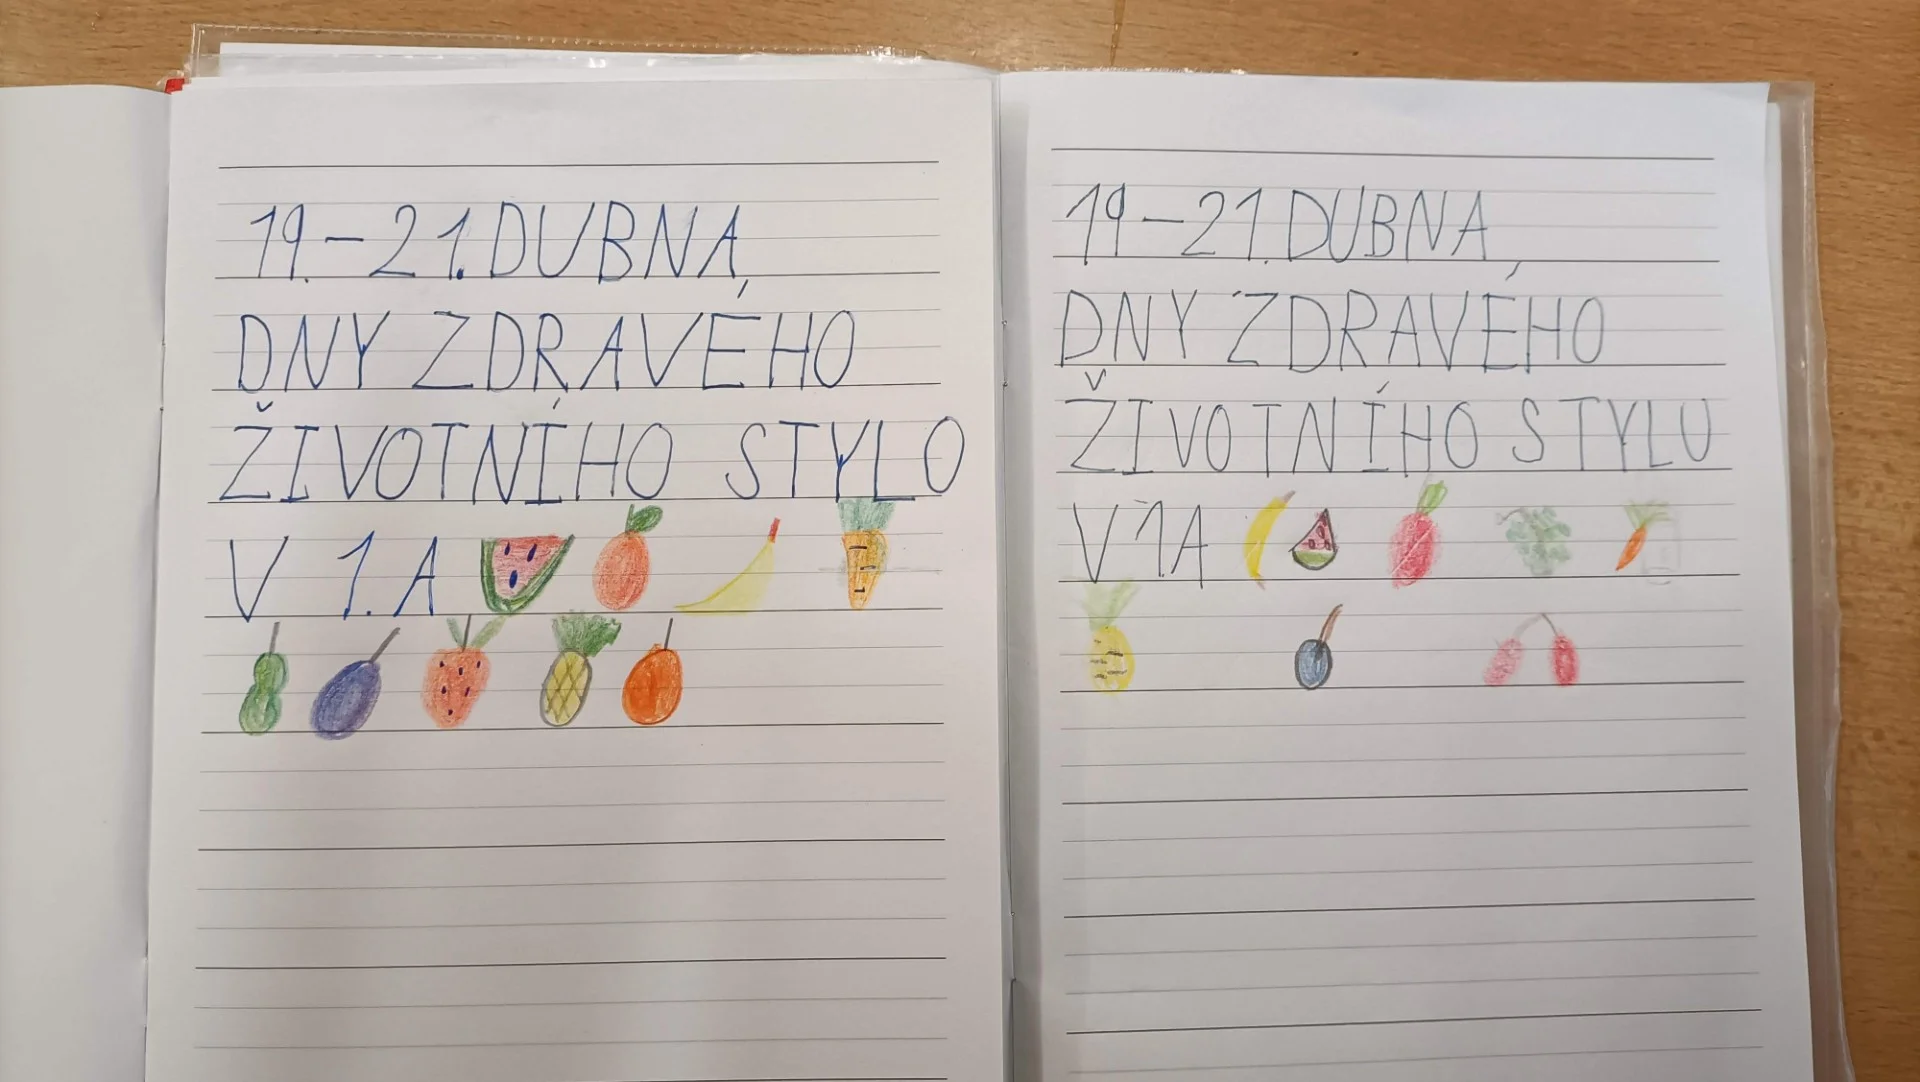 19.-21.DUBNA
DNY ZDRAVÉHO
ŽIVOTNÍHO STYLO
V 1.A
19-21.DUBNA
DNY ZDRAVÉHO
ŽIVOTNÍHO STYLU
V 1A